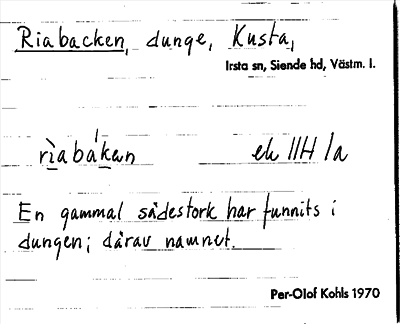 Riabacken, dunge, Kusta,
Irsta sn, Siende hd, Västm. l.
rìabákan ek IIH 1a
En gammal sädestork har funnits i
dungen; därav namnet.
Per-Olof Kohls 1970